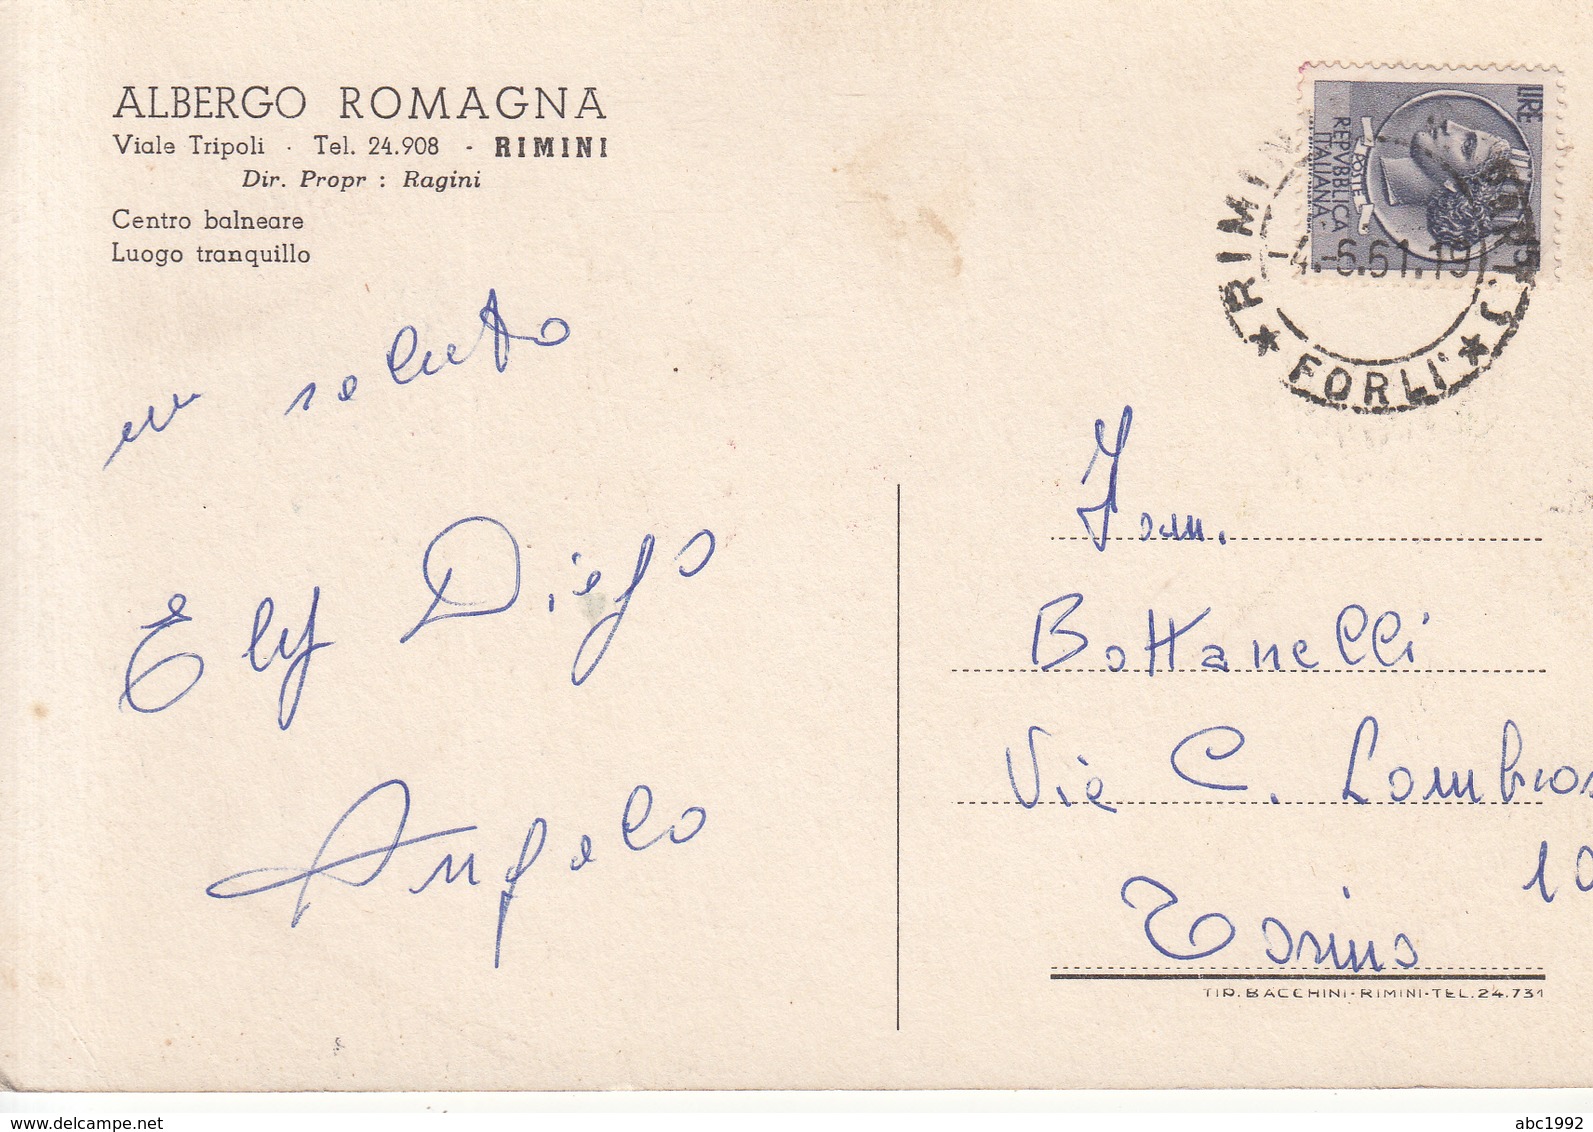 ALBERGO ROMAGNA
Viale Tripoli · Tel. 24.908 - RIMINI
Dir. Propr : Ragini
Centro balneare
Luogo tranquillo
un saluto
Ely Diego
Angelo
LIRE
REPVBBLICA
ITALIANA
POSTE
RIMINI
4.-6.61.19
★ FORLI' ★
Fam.
Bottanelli
Via C. Lombros
10
Torino
TIP. BACCHINI-RIMINI-TEL.24.731
www.delcampe.net
abc1992